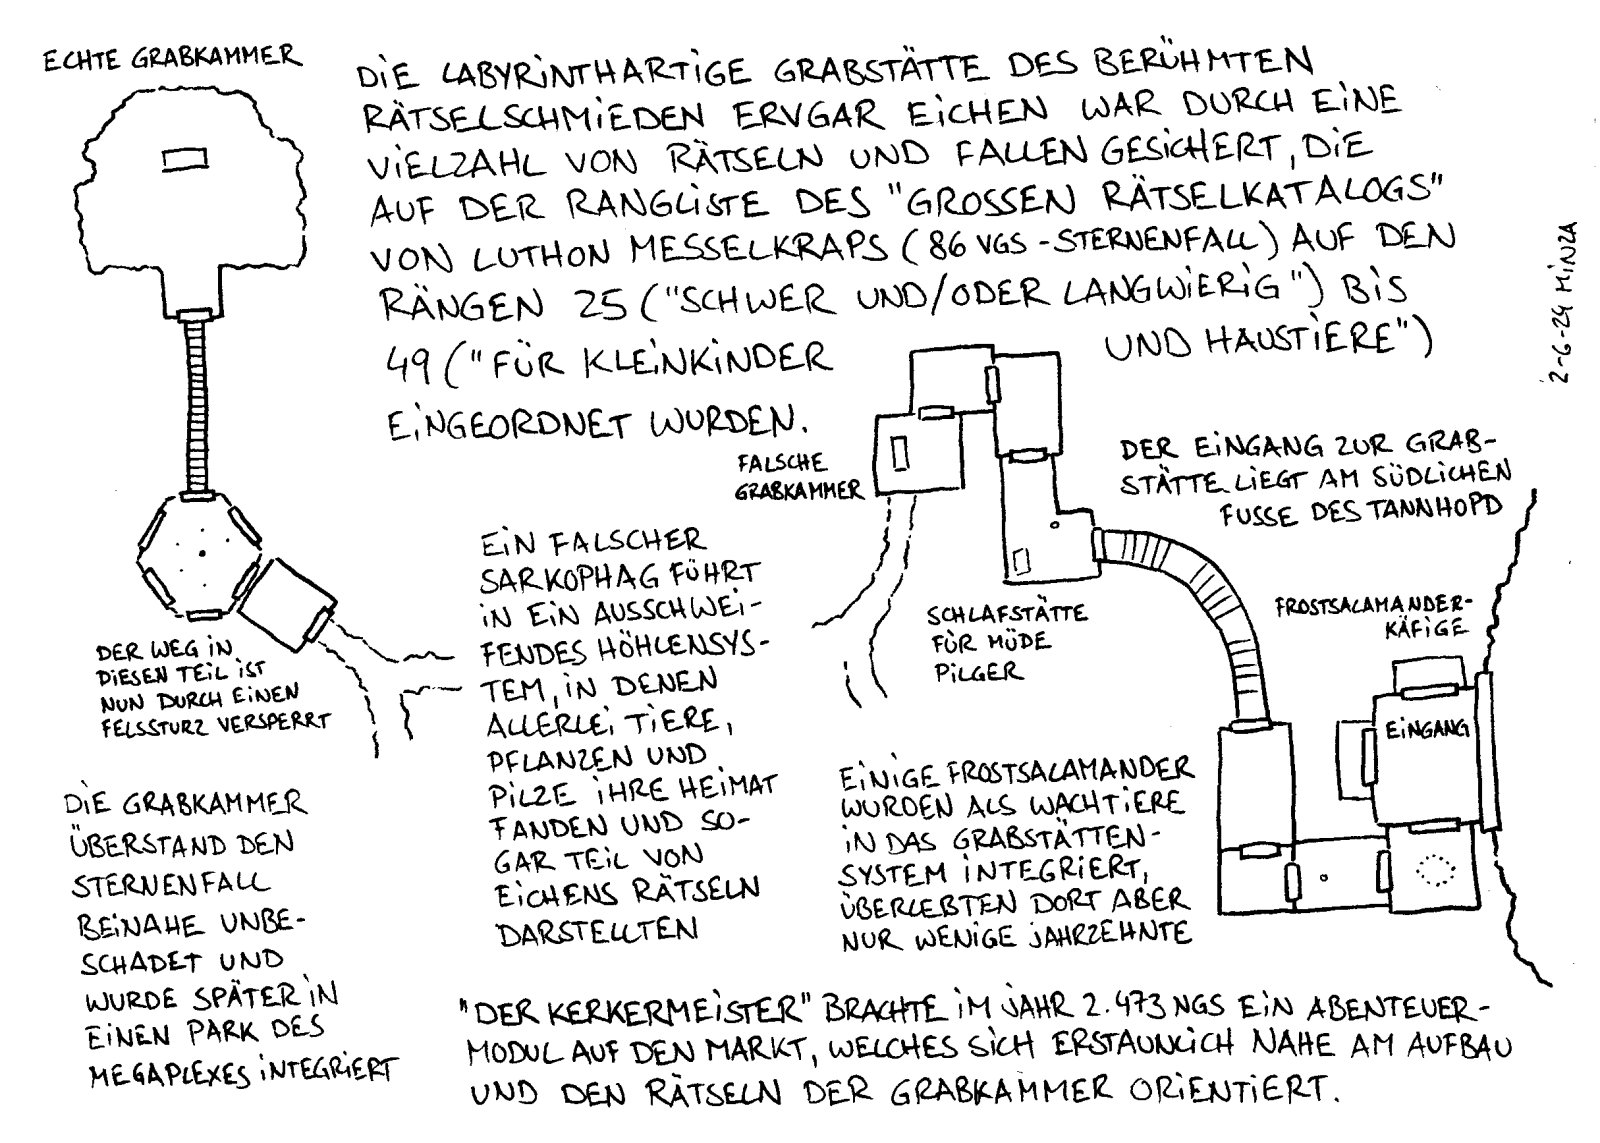 ECHTE GRABKAMMER
DIE LABYRINTHARTIGE GRABSTÄTTE DES BERÜHMTEN
RÄTSELSCHMIEDEN ERVGAR EICHEN WAR DURCH EINE
VIELZAHL VON RÄTSELN UND FALLEN GESICHERT, DIE
AUF DER RANGLISTE DES "GROSSEN RÄTSELKATALOGS"
VON LUTHON MESSELKRAPS (86 VGS-STERNENFALL) AUF DEN
RÄNGEN 25 ("SCHWER UND/ODER LANGWIERIG") BIS
49 ("FÜR KLEINKINDER UND HAUSTIERE")
EINGEORDNET WURDEN.
2-6-24 MINZA
FALSCHE
GRABKAMMER
DER EINGANG ZUR GRAB-
STÄTTE LIEGT AM SÜDLICHEN
FUSSE DES TANNHOPD
EIN FALSCHER
SARKOPHAG FÜHRT
IN EIN AUSSCHWEI-
FENDES HÖHLENSYS-
TEM, IN DENEN
ALLERLEI TIERE,
PFLANZEN UND
PILZE IHRE HEIMAT
FANDEN UND SO-
GAR TEIL VON
EICHENS RÄTSELN
DARSTELLTEN
SCHLAFSTÄTTE
FÜR MÜDE
PILGER
FROSTSALAMANDER-
KÄFIGE
EINGANG
DER WEG IN
DIESEN TEIL IST
NUN DURCH EINEN
FELSSTURZ VERSPERRT
DIE GRABKAMMER
ÜBERSTAND DEN
STERNENFALL
BEINAHE UNBE-
SCHADET UND
WURDE SPÄTER IN
EINEN PARK DES
MEGAPLEXES INTEGRIERT
EINIGE FROSTSALAMANDER
WURDEN ALS WACHTIERE
IN DAS GRABSTÄTTEN-
SYSTEM INTEGRIERT,
ÜBERLEBTEN DORT ABER
NUR WENIGE JAHRZEHNTE
"DER KERKERMEISTER" BRACHTE IM JAHR 2.473 NGS EIN ABENTEUER-
MODUL AUF DEN MARKT, WELCHES SICH ERSTAUNLICH NAHE AM AUFBAU
UND DEN RÄTSELN DER GRABKAMMER ORIENTIERT.